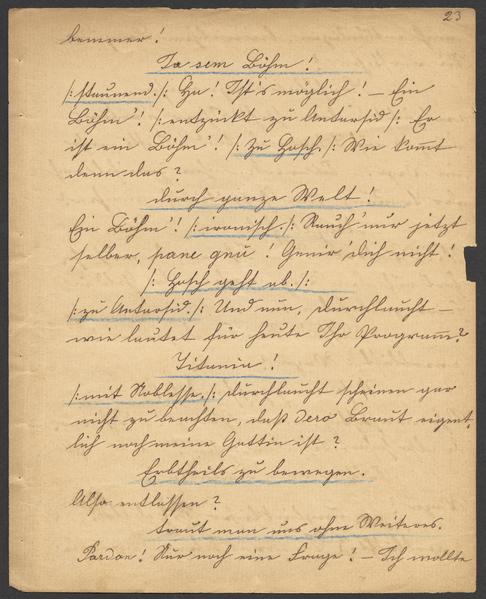 23
bemmer!
Ja sem Böhm!
/: staunend :/ Ha! Ist's möglich! — Ein
Böhm'! /: entzückt zu Antarsid :/ Er
ist ein Böhm'! /: Zu Hasch :/ Wie kom̅t
denn das?
durch ganze Welt!
Ein Böhm'! /: ironisch :/ Rauch' nur jetzt
selber, pane gnú! Genir dich nicht!
/: Hasch geht ab. :/
/: zu Antarsid. :/ Und nun, Durchlaucht —
wie lautet für heute Ihr Program̅?
Titania!
/: mit Noblesse. :/ Durchlaucht scheinen gar
nicht zu beachten, daß dero Braut eigent-
lich noch meine Gattin ist?
Erbtheils zu bewegen.
Also entlassen?
traut man uns ohne Weiteres.
Pardon! Nur noch eine Frage! — Ich wollte